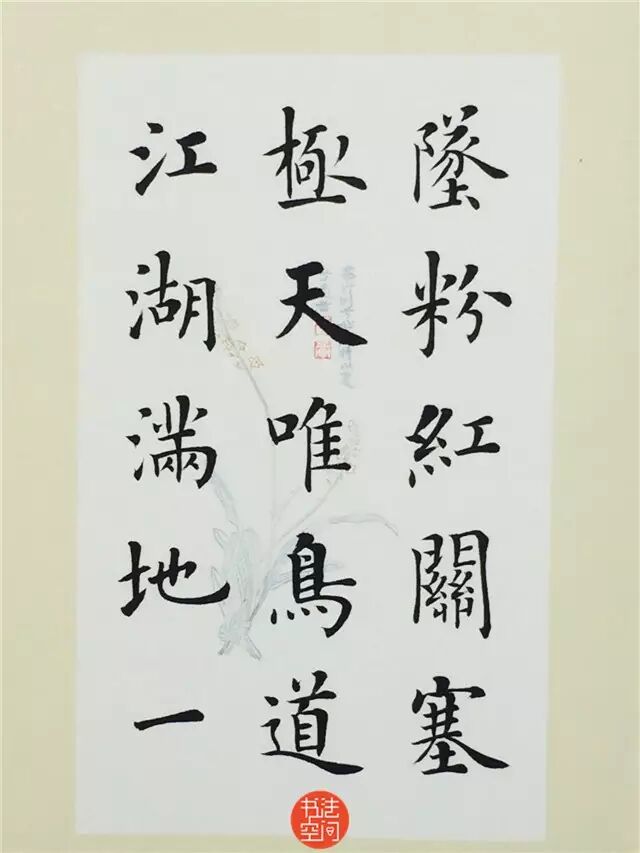 墜粉紅關塞
極天唯鳥道
江湖滿地一
书法空间